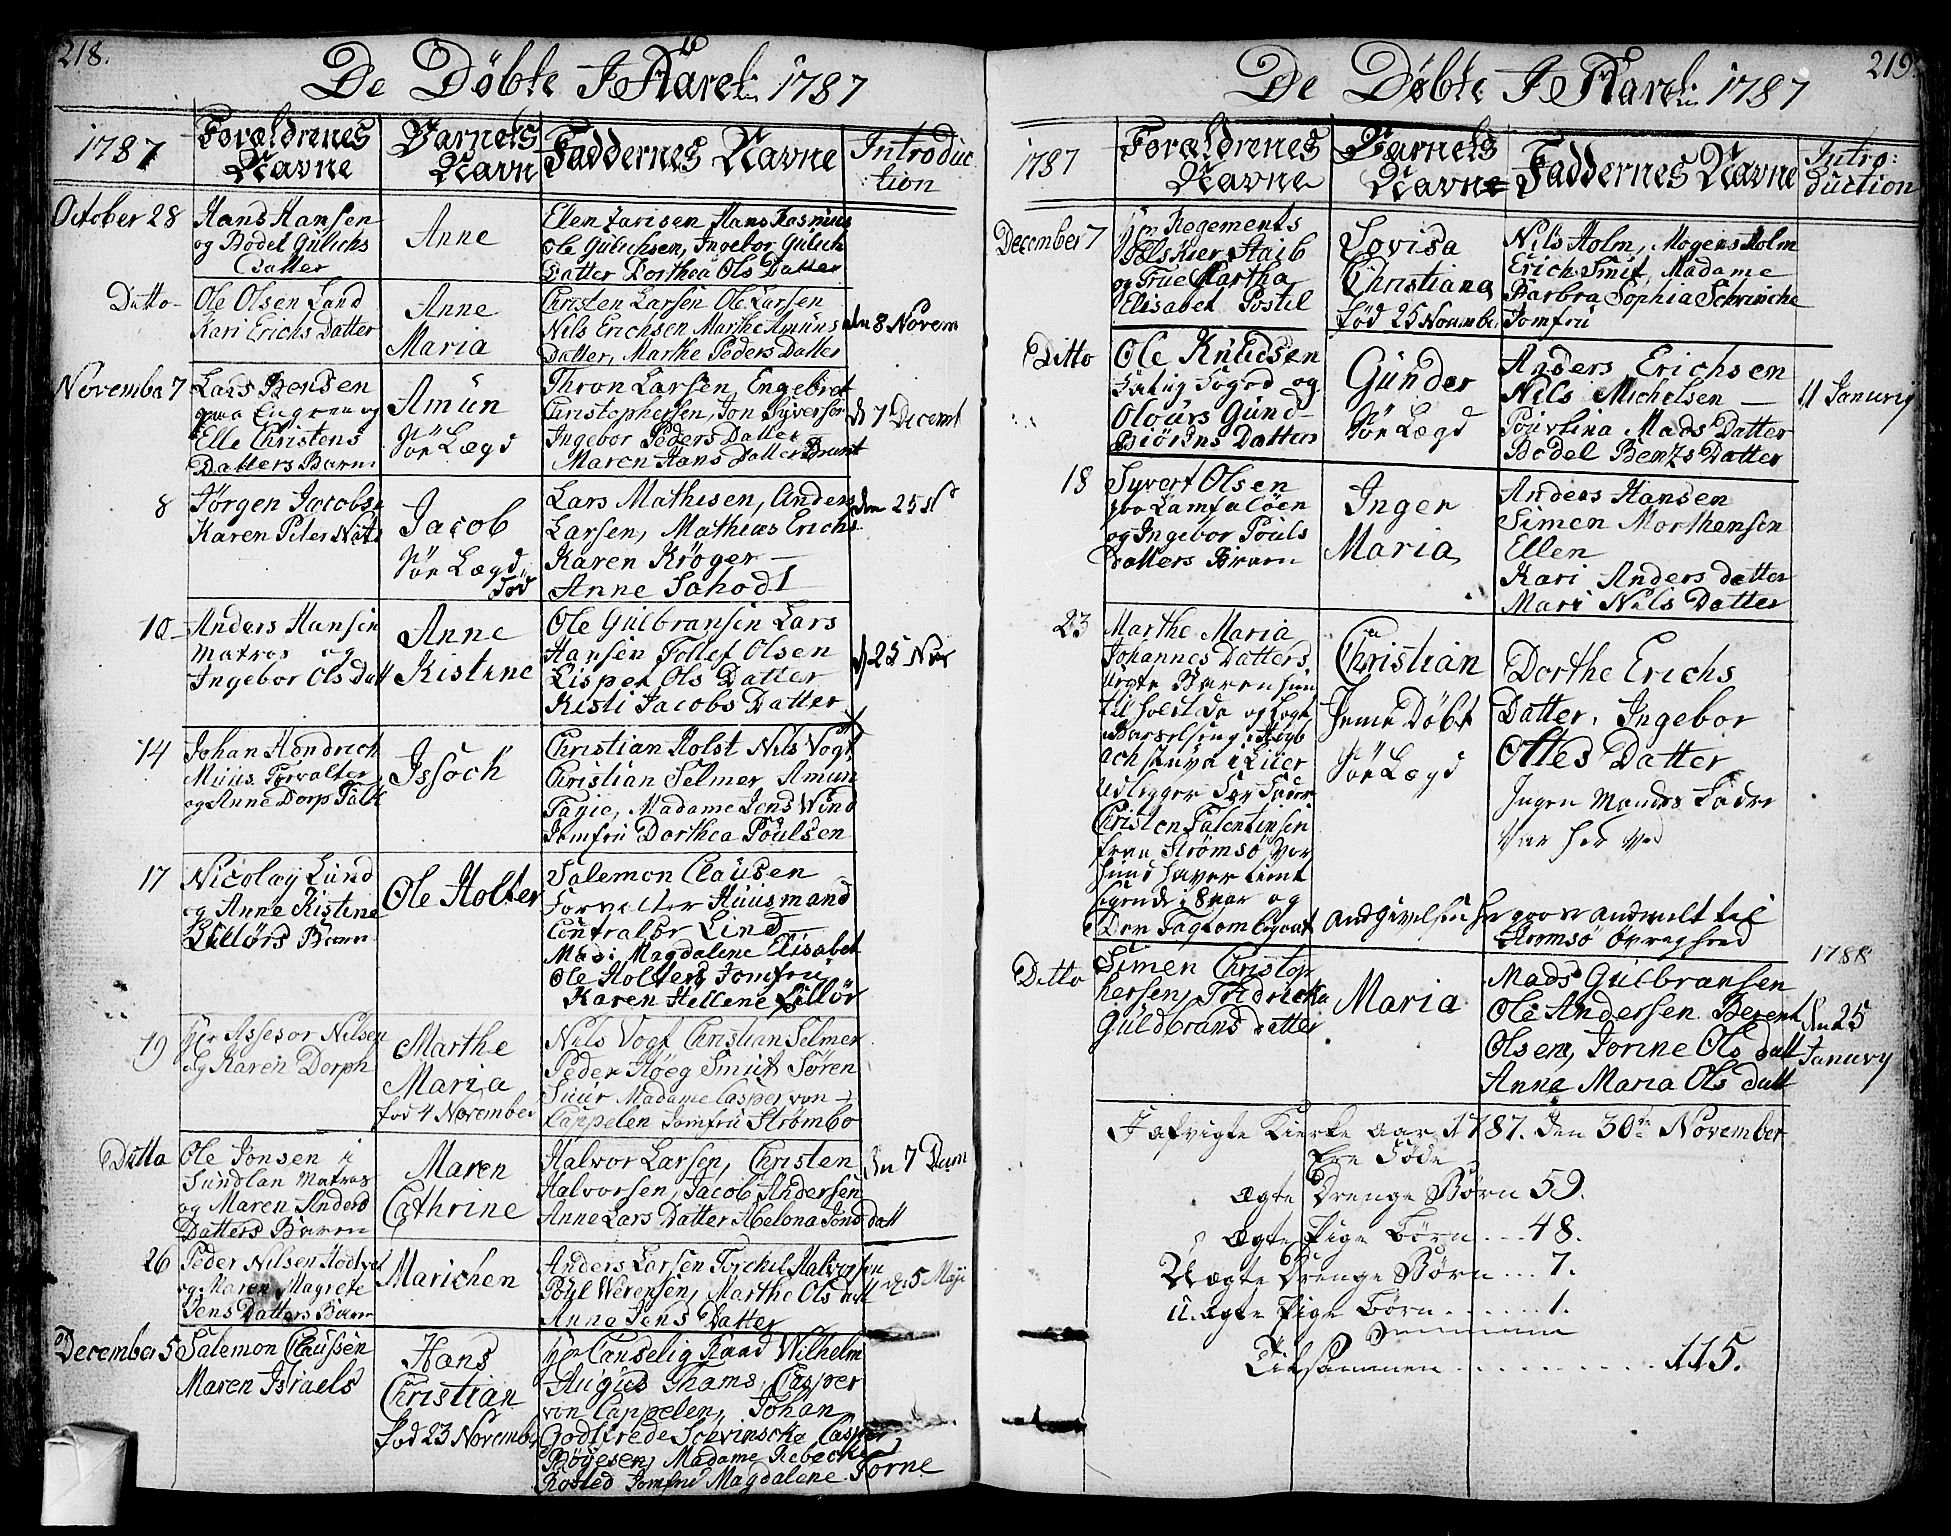 218.
De Døbte I Aaret 1787
1787
Forældrenes Navne
Barnets Navn
Faddernes Navne
Introduc:tion
October 28
Hans Hansen
og Bodel Gulichs
Datter
Anne
Elen Larisen Hans Rasmus
Ole Gulichsen, Ingebor Gulich
Datter Dorthea Ols Datter
Ditto
Ole Olsen Land
Kari Erichs Datter
Anne
Maria
Christen Larsen Ole Larsen
Nils Erichsen Marthe Amuns
Datter, Marthe Peders Datter
den 8 Novem
November 7
Lars Bensen
paa Engene og
Elle Christens
Datters Barn
Amun
Før Lægd
Thron Larsen, Engebret
Christophersen, Jon Syversor
Ingebor Peders Datter
Maren Hans Datter Brunt
d 7 Decemt
8
Jørgen Jacobs
Karen Peter Nils
Jacob
Før Lægd
Død
Lars Mathisen, Anders
Larsen, Mathias Erichs
Karen Krøger
Anne Sahodt
den 25 N
10
Anders Hansen
Matros og
Ingebor Ols Datt
Anne
Kistine
Ole Gulbransen Lars
Hansen Tollef Olsen
Lispet Ols Datter
Kisti Jacobs Datter
d 25 Nov
14
Johan Hendrich
Muus Forvalter
og Anne Dorp Falk
Issoch
Christian Holst Nils Vogt
Christian Selmer Amun
Fagie, Madame Jens Wind
Jomfru Dorthea Poulsen
17
Nicolay Lund
og Anne Kistine
Lillørs Barn
Ole Holter
Salemon Clausen
Forvalter Huusmand
Contralør Lind
Madm Magdalene Elisabet
Ole Holters Jomfru
Karen Hellene Lillør
19
Hr Assesor Nilsen
og Karen Dorph
Marthe
Maria
fod 4 November
Nils Vogt Christian Selmer
Peder Høeg Smut Søren
Suur Madame Casper von
Cappelen Jomfru Strømbo
Ditto
Ole Jonsen i
Sundlan Matros
og Maren Anders
Datters Barn
Maren
Cathrine
Halvor Larsen, Christen
Halvorsen, Jacob Andersen
Anne Lars Datter Abelona Jons Datt
den 7 Decm
26
Peder Nilsen Hodtvet
og Maren Magrete
Jens Datters Barn
Marichen
Anders Larsen Torckel Halvorsen
Poul Werensen, Marthe Ols datt
Anne Jens Datter
den 5 Maji
December 5
Salemon Claussen
Maren Israels
Hans
Christian
fod 23 November
Hr Canselig Raad Wilhelm
August Thams, Casper
von Cappelen, Johan
Godtfrede Schvinscke Casper
Bøyesen, Madame Rebecka
Rosted Jomfru Magdalene Torne
219.
De Døbte I Aaret 1787
1787
Forældrenes Navne
Barnets Navne
Faddernes Navne
Intro:duction
December 7
Hr Regements
Felskier Staib
og Frue Martha
Elisabet Postel
Lovisa
Christiana
fød 25 November
Nils Holm, Mogens Holm
Erich Smit, Madame
Barbra Sophia Schrinche
Jomfru
Ditto
Ole Knudsen
Fattig Fogod og
Olours Gund
Biørens Datters
Gunder
Før Lægd
Anders Erichsen
Nils Michelsen
Pourlina Mads Datter
Bodel Bentzs Datter
11 Januvij
18
Syvert Olsen
paa Lamfaløen
og Ingebor Pouls
Datters Barn
Inger
Maria
Anders Hansen
Simen Morthensen
Ellen
Kari Anders datter
Mari Nils Datter
23
Marthe Maria
Johannes Datters
Uegte Barn hun
til holt da og lagt
i Barselseng i Høyb
ach stuva i Liier
udlegger for Fader
Christen Falentinsen
fraa Strømsø
hund haver tient
Christian
Jeme Døbt
Før Lægd
Dorthe Erichs
Datter, Ingebor
Ottes Datter
Ingen Mands Fadre
Var her ved
Andgivelsen her paa er anmelt til
Strømsø Øvrighed
Ditto
Simen Christop
hersen, Fridricka
Guldbrans datter
Maria
Mads Gulbransen
Ole Andersen Berent
Olsen, Jorine Ols datt
Anne Maria Ols datt
1788
den 25
Januvy
I afvigte Kierke aar 1787. den 30te November
Ere Føde
Ægte Drenge Børn 59.
Ægte Pige Børn . . . 48.
U Ægte Drenge Børn . . . 7.
U. Ægte Pige Børn . . . . . . 1.
Tilsammen . . . . . . . . . . 115.